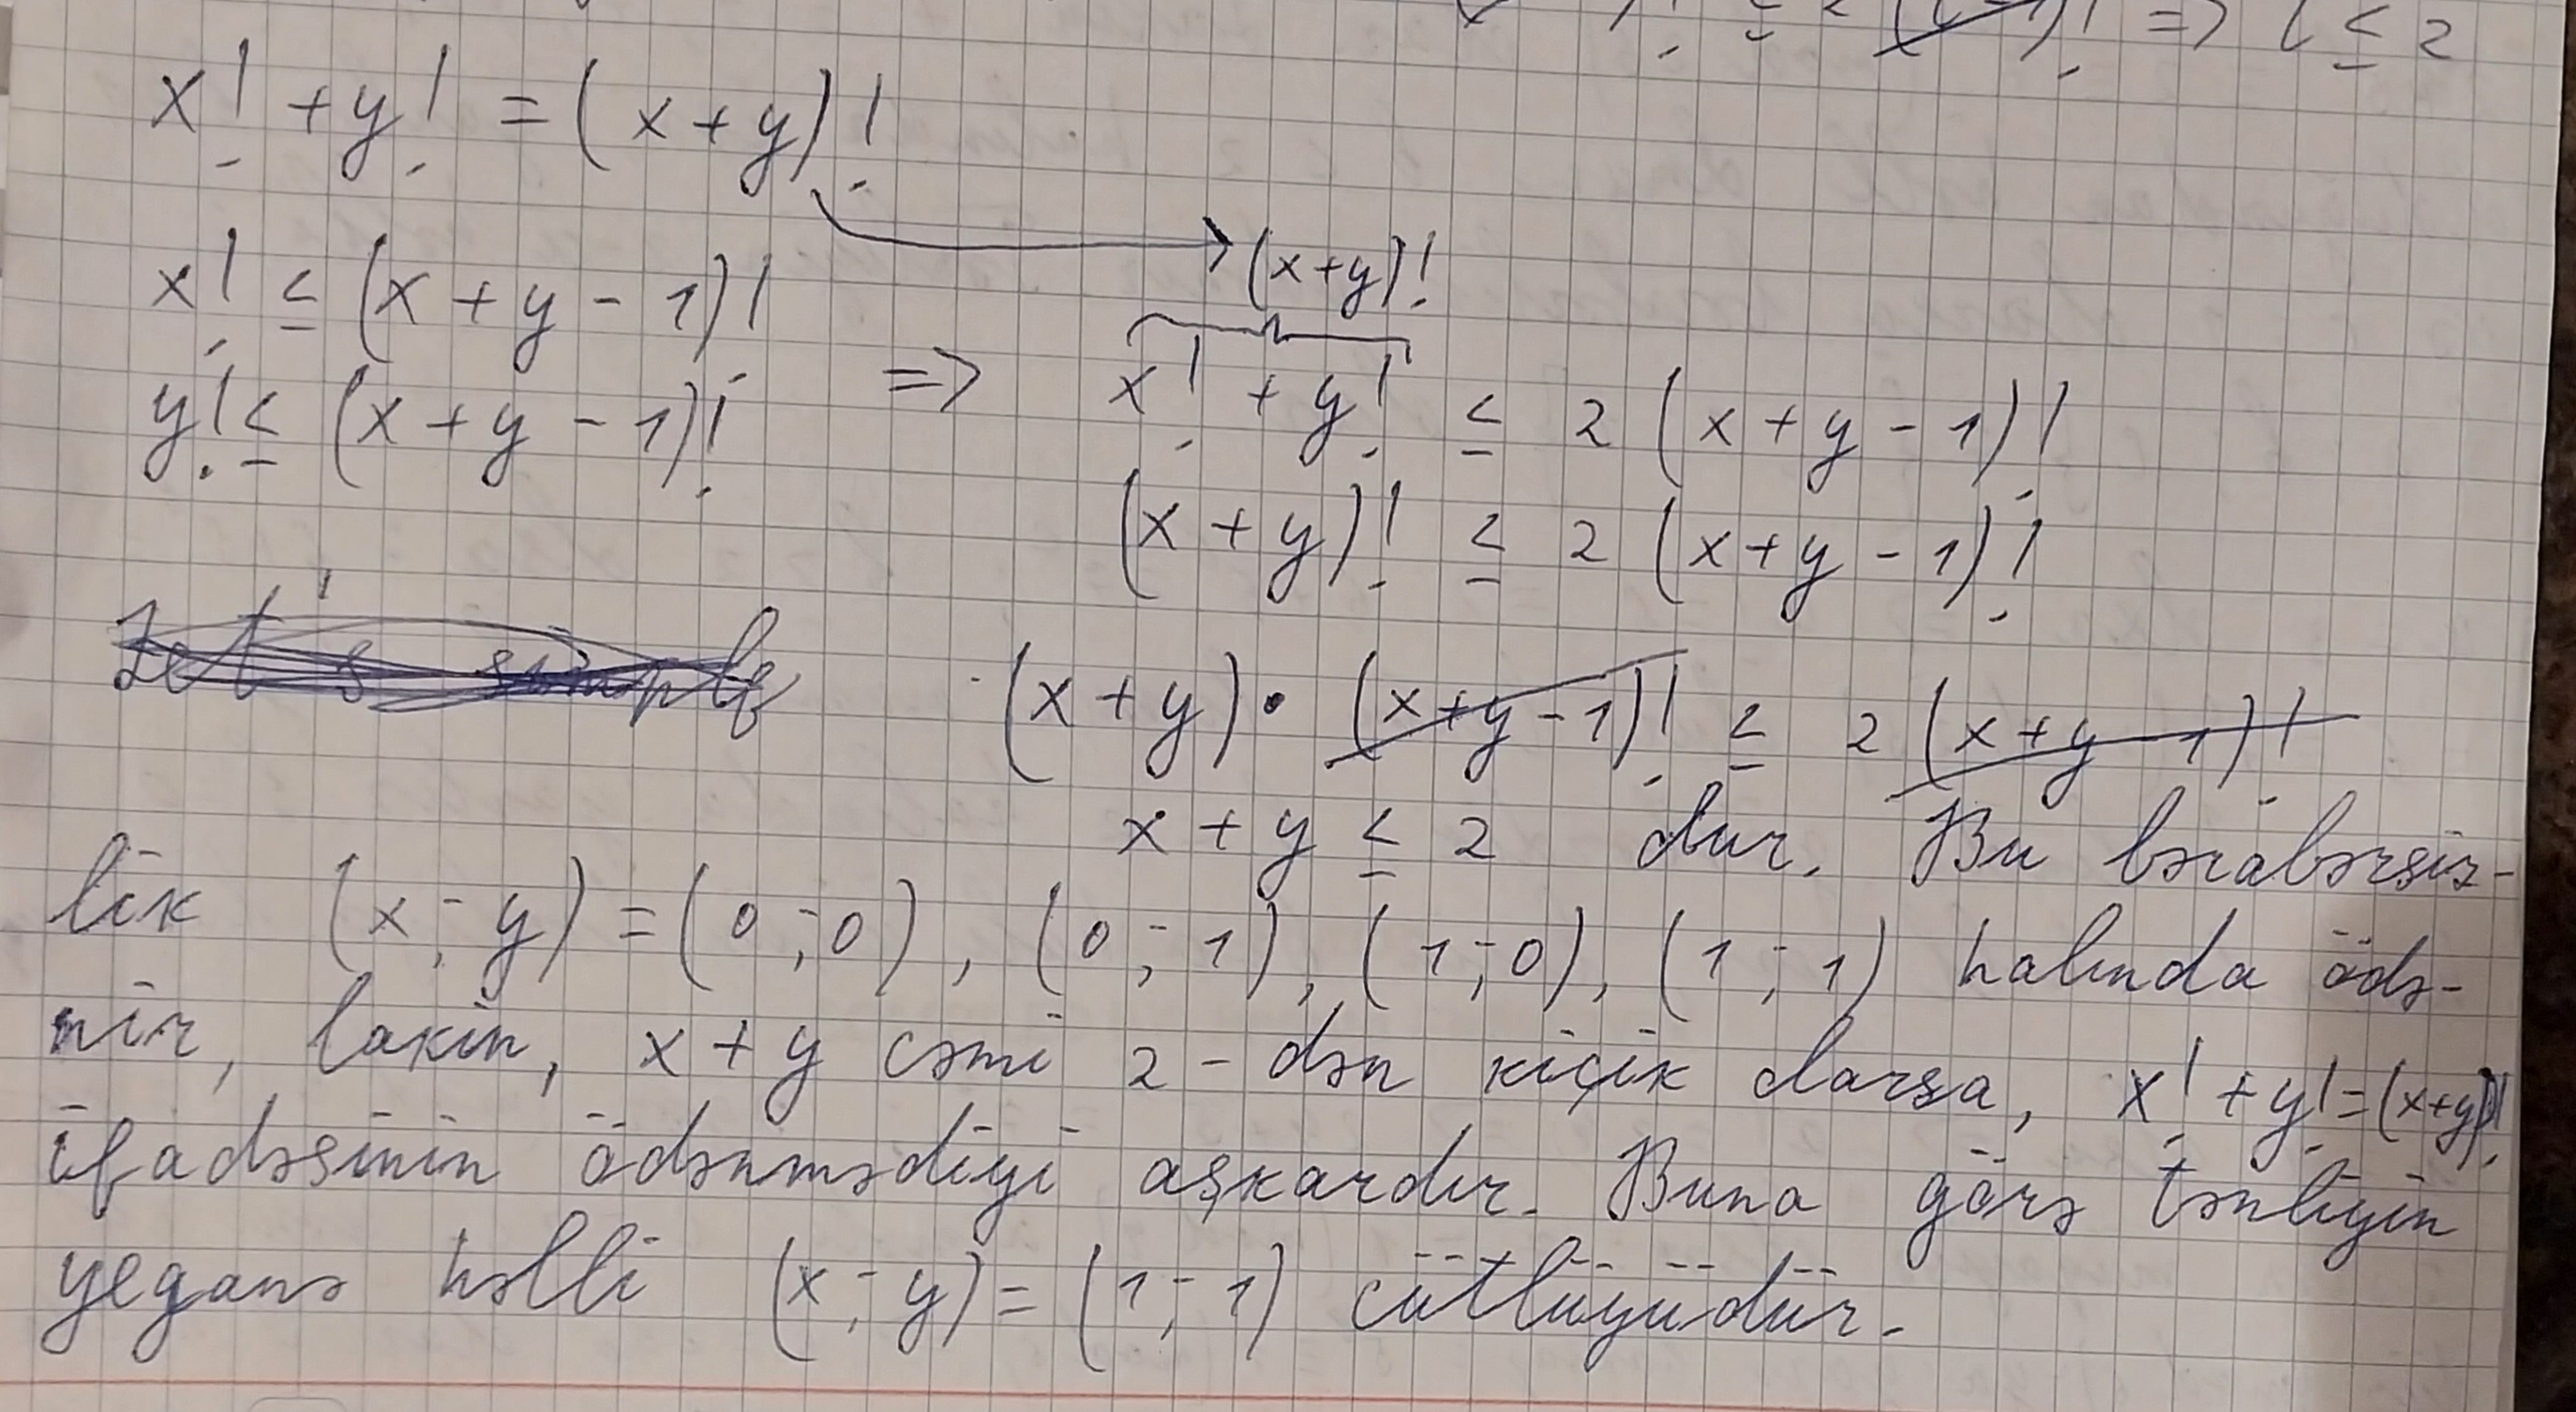 (l-1)! => l ≤ 2
x! + y! = (x+y)!
(x+y)!
x! ≤ (x+y-1)!
y! ≤ (x+y-1)! => x! + y! ≤ 2(x+y-1)!
(x+y)! ≤ 2(x+y-1)!
(x+y)·(x+y-1)! ≤ 2(x+y-1)!
x+y ≤ 2 dur. Bu bərabərsiz-
lik (x;y)=(0;0), (0;1), (1;0), (1;1) halında ödə-
nir, lakin, x+y cəmi 2-dən kiçik olarsa, x!+y!=(x+y)!
ifadəsinin ödənmədiyi aşkardır. Buna görə tənliyin
yeganə həlli (x;y)=(1;1) cütlüyüdür.